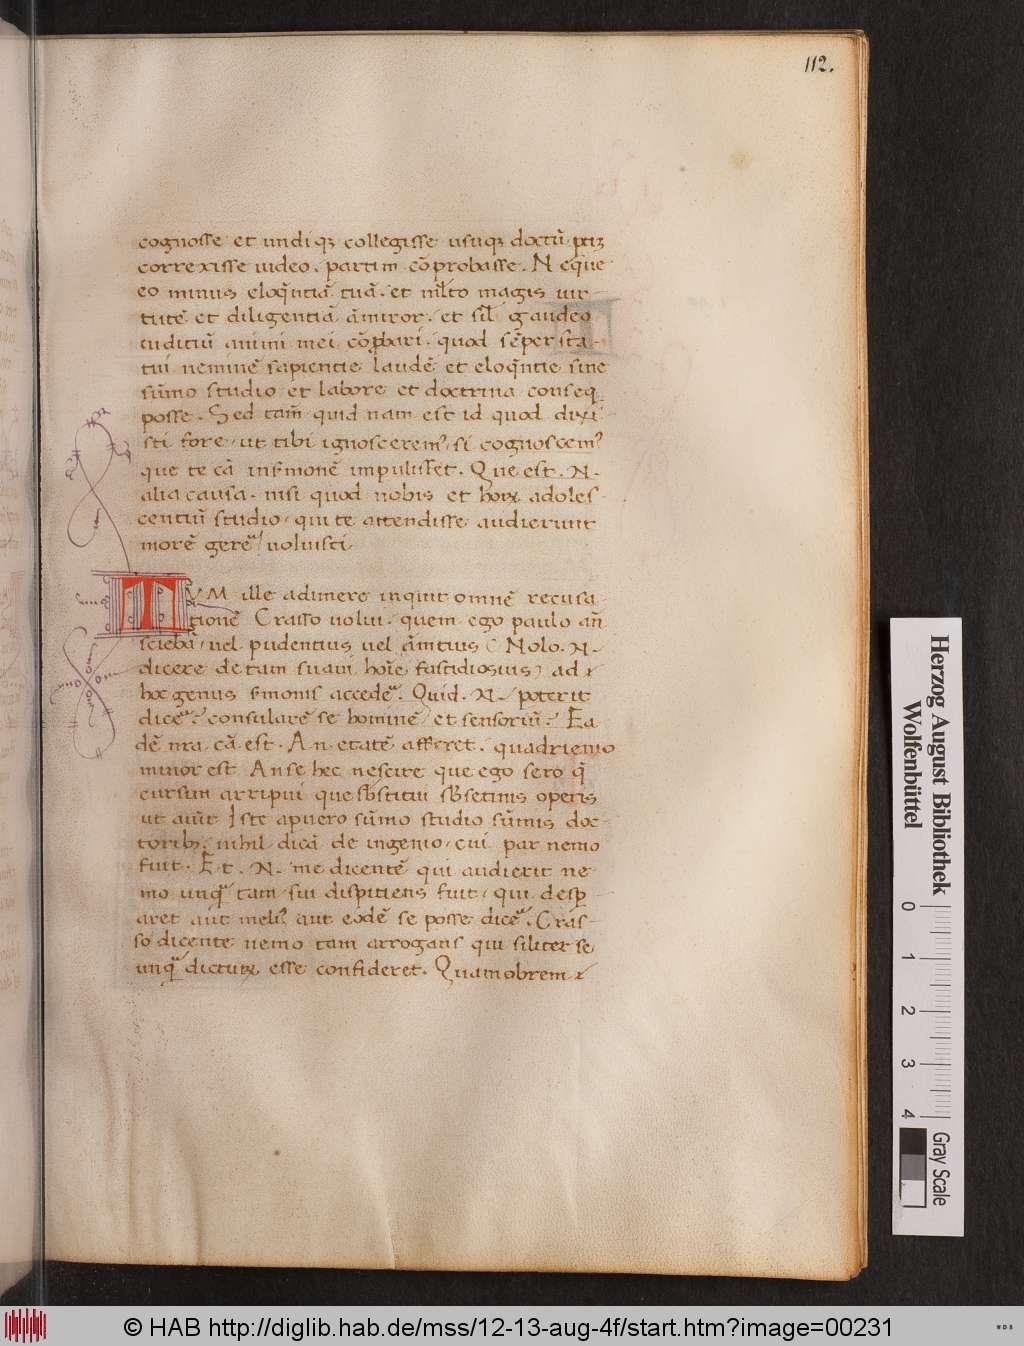 112.
cognosse et undiqꝫ collegisse usuqꝫ doctū partiꝫ
correxisse uideo. partim cōprobasse. N eq̄ue
eo minus eloq̄ntiā tuā. et ml̄to magis uir-
tutē et diligentiā āmiror. et sil̄ gaudeo
iuditiū animi mei cōꝓbari. quod sēper sta-
tui neminē sapientie laudē et eloq̄ntie sine
sūmo studio et labore et doctrina conseq
posse. Sed tam̄ quid nam est id quod dixi-
sti fore, ut tibi ignoscerem᾽, si cognoscem᾽
que te cā
impulisset. Que est. N.
alia causa. nisi quod nobis et hoꝝ adoles-
centiū studio, qui te attendisse audierunt
morē gerē uoluisti.
TVM ille adimere inquit omnē recusa-
tionē Crasso uolui. quem ego paulo an̄
sciebā, uel pudentius uel āmtius ( Nolo. N.
dicere de tam suaui hoīe fastidiosius) ad
hoc genus s̄monis accedē. Quid. N. poterit
dicē? consularē se hominē, et sensoriū? Ea-
dē nr̄a cā est. An etatē afferet. quadriennio
minor est. An se hec nescire que ego sero q̄
cursim arripui que sb̄stitui sb̄setiuis operis
ut aiūt Iste apuero sūmo studio sūmis doc-
toribꝫ. nihil dicā de ingenio, cui par nemo
fuit. Et. N. me dicentē qui audierit ne-
mo unqᵃ tam sui dispitiens fuit, qui desꝑ-
aret aut meli᾽ aut eodē se posse dicē. Cras-
so dicente nemo tam arrogans qui siliter se
unqᵃ dictuꝝ esse confideret. Quamobrem
Herzog August Bibliothek
Wolfenbüttel
0 1 2 3 4
Gray Scale
© HAB http://diglib.hab.de/mss/12-13-aug-4f/start.htm?image=00231